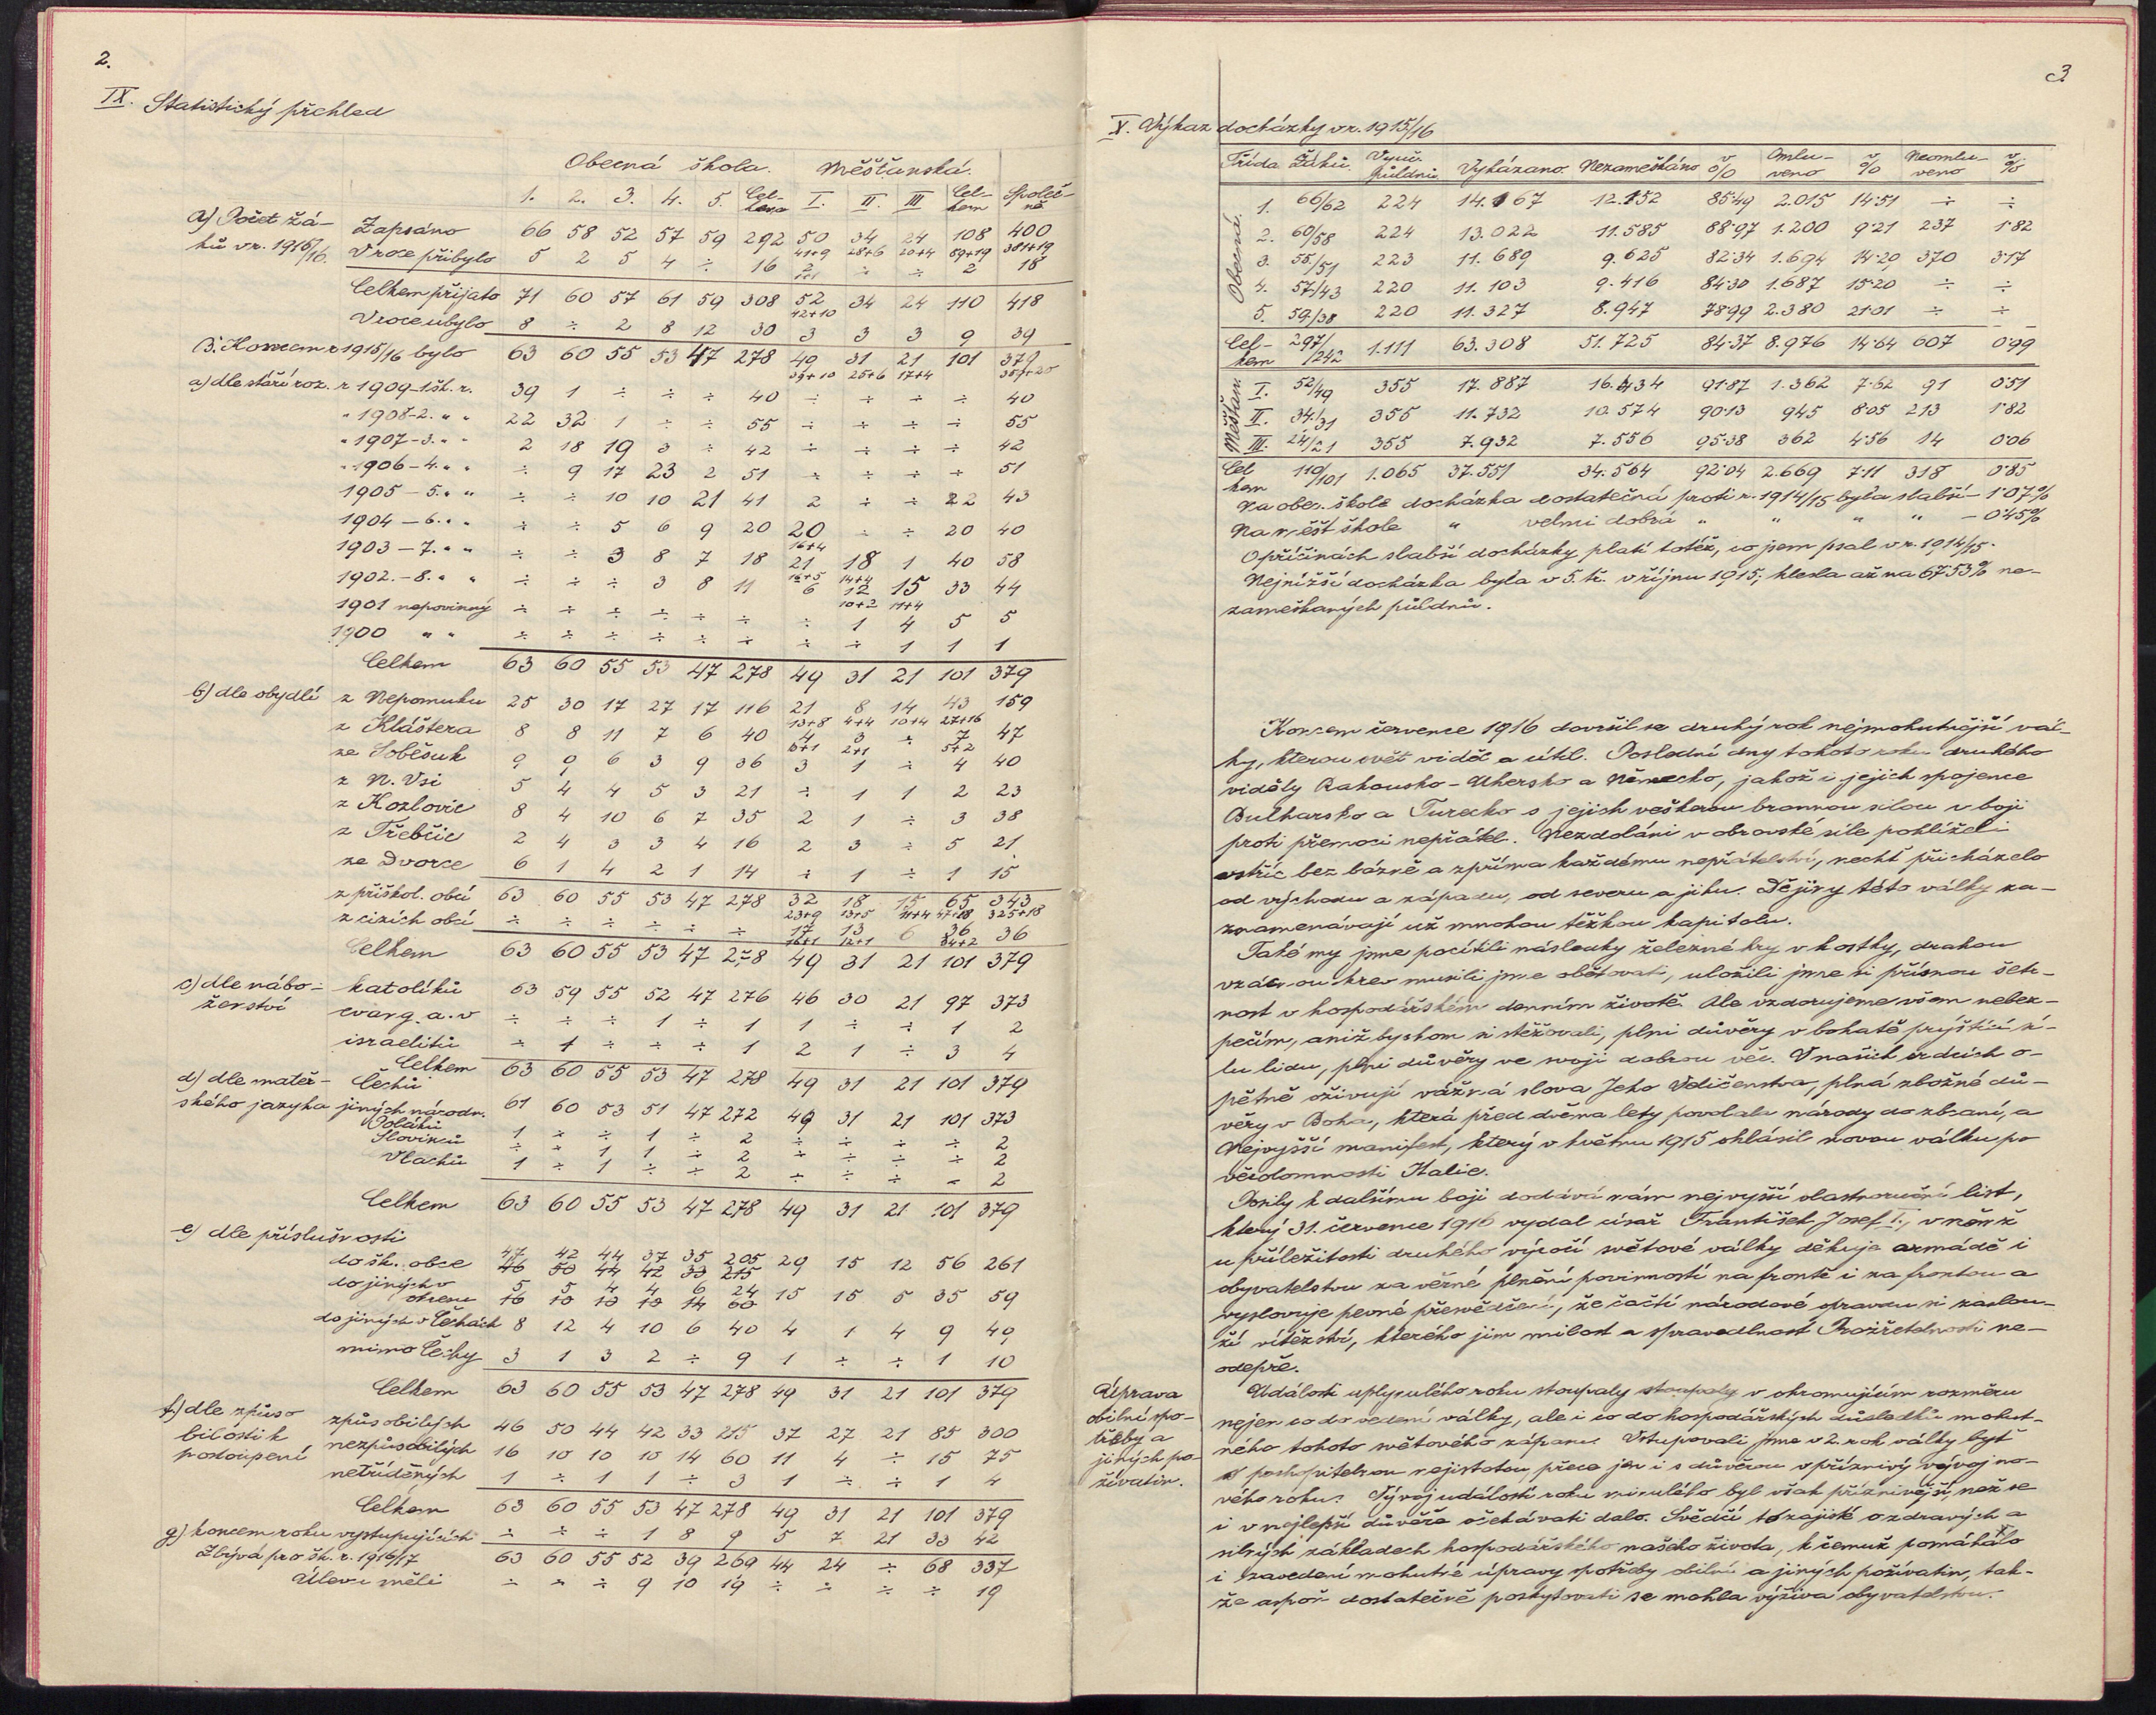 2.
IX. Statistický přehled
Obecná škola. Měšťanská.
1. 2. 3. 4. 5. Cel-kem I. II. III Cel-kem Společ-ně
a) Počet žá- Zapsáno 66 58 52 57 59 292 50 34 24 108 400
41+9 28+6 20+4 89+19 381+19
ků v r. 1915/16. V roce přibylo 5 2 5 4 ÷ 16 2 ÷ ÷ 2 18
1+1
Celkem přijato 71 60 57 61 59 308 52 34 24 110 418
42+10
V roce ubylo 8 ÷ 2 8 12 30 3 3 3 9 39
B. Koncem r 1915/16 bylo 63 60 55 53 47 278 49 31 21 101 379
39+10 25+6 17+4 359+20
a) dle stáří roz. r 1909-1 šk. r. 39 1 ÷ ÷ ÷ 40 ÷ ÷ ÷ ÷ 40
" 1908-2. " " 22 32 1 ÷ ÷ 55 ÷ ÷ ÷ ÷ 55
" 1907-3. " " 2 18 19 3 ÷ 42 ÷ ÷ ÷ ÷ 42
" 1906-4. " " ÷ 9 17 23 2 51 ÷ ÷ ÷ ÷ 51
1905-5. " " ÷ ÷ 10 10 21 41 2 ÷ ÷ 22 43
1904-6. " " ÷ ÷ 5 6 9 20 20 ÷ ÷ 20 40
16+4
1903-7. " " ÷ ÷ 3 8 7 18 21 18 1 40 58
16+5 14+4
1902.-8. " " ÷ ÷ ÷ 3 8 11 6 12 15 33 44
10+2 11+4
1901 nepovinný ÷ ÷ ÷ ÷ ÷ ÷ ÷ 1 4 5 5
1900 " " ÷ ÷ ÷ ÷ ÷ ÷ ÷ ÷ 1 1 1
Celkem 63 60 55 53 47 278 49 31 21 101 379
b) dle obydlí z Nepomuku 25 30 17 27 17 116 21 8 14 43 159
13+8 4+4 10+4 27+16
z Kláštera 8 8 11 7 6 40 4 3 ÷ 7 47
3+1 2+1 5+2
ze Soběsuk 9 9 6 3 9 36 3 1 ÷ 4 40
z N. Vsi 5 4 4 5 3 21 ÷ 1 1 2 23
z Kozlovic 8 4 10 6 7 35 2 1 ÷ 3 38
z Třebčic 2 4 3 3 4 16 2 3 ÷ 5 21
ze Dvorce 6 1 4 2 1 14 ÷ 1 ÷ 1 15
z přiškol. obcí 63 60 55 53 47 278 32 18 15 65 343
23+9 13+5 11+4 47+18 325+18
z cizích obcí ÷ ÷ ÷ ÷ ÷ ÷ 17 13 6 36 36
16+1 12+1 34+2
Celkem 63 60 55 53 47 278 49 31 21 101 379
c) dle nábo- katolíků 63 59 55 52 47 276 46 30 21 97 373
ženství evang. a. v ÷ ÷ ÷ 1 ÷ 1 1 ÷ ÷ 1 2
israelitů ÷ 1 ÷ ÷ ÷ 1 2 1 ÷ 3 4
Celkem 63 60 55 53 47 278 49 31 21 101 379
d) dle mateř- Čechů 61 60 53 51 47 272 49 31 21 101 373
ského jazyka jiných národn.
Poláků 1 ÷ ÷ 1 ÷ 2 ÷ ÷ ÷ ÷ 2
Slovinců ÷ ÷ 1 1 ÷ 2 ÷ ÷ ÷ ÷ 2
Vlachů 1 ÷ 1 ÷ ÷ 2 ÷ ÷ ÷ ÷ 2
Celkem 63 60 55 53 47 278 49 31 21 101 379
e) dle příslušnosti
47 42 44 37 35 205
do šk. obce 46 50 44 42 33 215 29 15 12 56 261
do jiných v 5 5 4 4 6 24
okresu 16 10 10 10 14 60 15 15 5 35 59
do jiných v Čechách 8 12 4 10 6 40 4 1 4 9 49
mimo Čechy 3 1 3 2 ÷ 9 1 ÷ ÷ 1 10
Celkem 63 60 55 53 47 278 49 31 21 101 379
f.) dle způso způsobilých 46 50 44 42 33 215 37 27 21 85 300
bilosti k nezpůsobilých 16 10 10 10 14 60 11 4 ÷ 15 75
postoupení netříděných 1 ÷ 1 1 ÷ 3 1 ÷ ÷ 1 4
Celkem 63 60 55 53 47 278 49 31 21 101 379
g) koncem roku vystupujících ÷ ÷ ÷ 1 8 9 5 7 21 33 42
Zbývá pro šk. r. 1916/17 63 60 55 52 39 269 44 24 ÷ 68 337
Úlevu měli ÷ ÷ ÷ 9 10 19 ÷ ÷ ÷ ÷ 19
3
X. Výkaz docházky v r. 1915/16
Třída Žáků. Vyuč. půldnů Vykázano. Nezameškáno v % Omlu-veno v % Neomlu-veno v %
Obecná.
1. 66/62 224 14.167 12.152 85·49 2.015 14·51 ÷ ÷
2. 60/58 224 13.022 11.585 88·97 1.200 9·21 237 1·82
3. 55/51 223 11.689 9.625 82·34 1.694 14·29 370 3·17
4. 57/43 220 11.103 9.416 84·30 1.687 15·20 ÷ ÷
5. 59/38 220 11.327 8.947 78·99 2.380 21·01 ÷ ÷
Cel-kem 297/242 1.111 63.308 51.725 84·37 8.976 14·64 607 0·99
Měšťan
I. 52/49 355 17.887 16.434 91·87 1.362 7·62 91 0·51
II. 34/31 355 11.732 10.574 90·13 945 8·05 213 1·82
III. 24/21 355 7.932 7.556 95·38 362 4·56 14 0·06
Cel kem 110/101 1.065 37.551 34.564 92·04 2.669 7·11 318 0·85
Na obec. škole docházka dostatečná proti r. 1914/15 byla slabší - 1·07%
Na měšť škole " velmi dobrá " " " " - 0·45%
O příčinách slabší docházky platí totéž, co jsem psal v r. 1914/15.
Nejnižší docházka byla v 5. tř. v říjnu 1915; klesla až na 67·53% ne-
zameškaných půldnů.
Koncem července 1916 dovršil se druhý rok nejmohutnější vál-
ky, kterou svět viděl a cítil. Poslední dny tohoto roku druhého
viděly Rakousko-Uhersko a Německo, jakož i jejich spojence
Bulharsko a Turecko s jejich veškerou brannou silou v boji
proti přemoci nepřátel. Nezdoláni v obrovské síle pohlíželi
vstříc bez bázně a zpříma každému nepřátelství, nechť přicházelo
od východu a západu, od severu a jihu. Dějiny této války za-
znamenávají už mnohou těžkou kapitolu.
Také my jsme pocítili následky železné hry v kostky, drahou
vzácnou krev musili jsme obětovati, uložili jsme si přísnou šetr-
nost v hospodářském denním životě. Ale vzdorujeme všem nebez-
pečím, aniž bychom si stěžovali, plni důvěry v bohatě prýštící sí-
lu lidu, plni důvěry ve svoji dobrou věc. V našich srdcích o-
pětně oživují vážná slova Jeho Veličenstva, plná zbožné dů-
věry v Boha, která před dvěma lety povolala národy do zbraní, a
Nejvyšší manifest, který v květnu 1915 ohlásil novou válku po
věrolomnosti Italie.
Posily k dalšímu boji dodává nám nejvyšší vlastnoruční list,
který 31. července 1916 vydal císař František Josef I., v němž
u příležitosti druhého výročí světové války děkuje armádě i
obyvatelstvu za věrné plnění povinností na frontě i za frontou a
vyslovuje pevné přesvědčení, že čačtí národové opravdu si zaslou-
ží vítězství, kterého jim milost a spravedlnost Prozřetelnosti ne-
odepře.
Úprava
obilní spo-
třeby a
jiných po-
živatin.
Události uplynulého roku stoupaly stoupaly v ohromujícím rozměru
nejen co do vedení války, ale i co do hospodářských důsledků mohut-
ného tohoto světového zápasu. Vstupovali jsme v 2. rok války byť
s pochopitelnou nejistotou, přece jen i s důvěrou v příznivý vývoj no-
vého roku. Vývoj událostí roku minulého byl však příznivější, než se
i v nejlepší důvěře očekávati dalo. Svědčí to zajisté o zdravých a
silných základech hospodářského našeho života, k čemuž pomáhalo
i zavedení mohutné úpravy spotřeby obilní a jiných poživatin, tak-
že aspoň dostatečně poskytovati se mohla výživa obyvatelstvu.